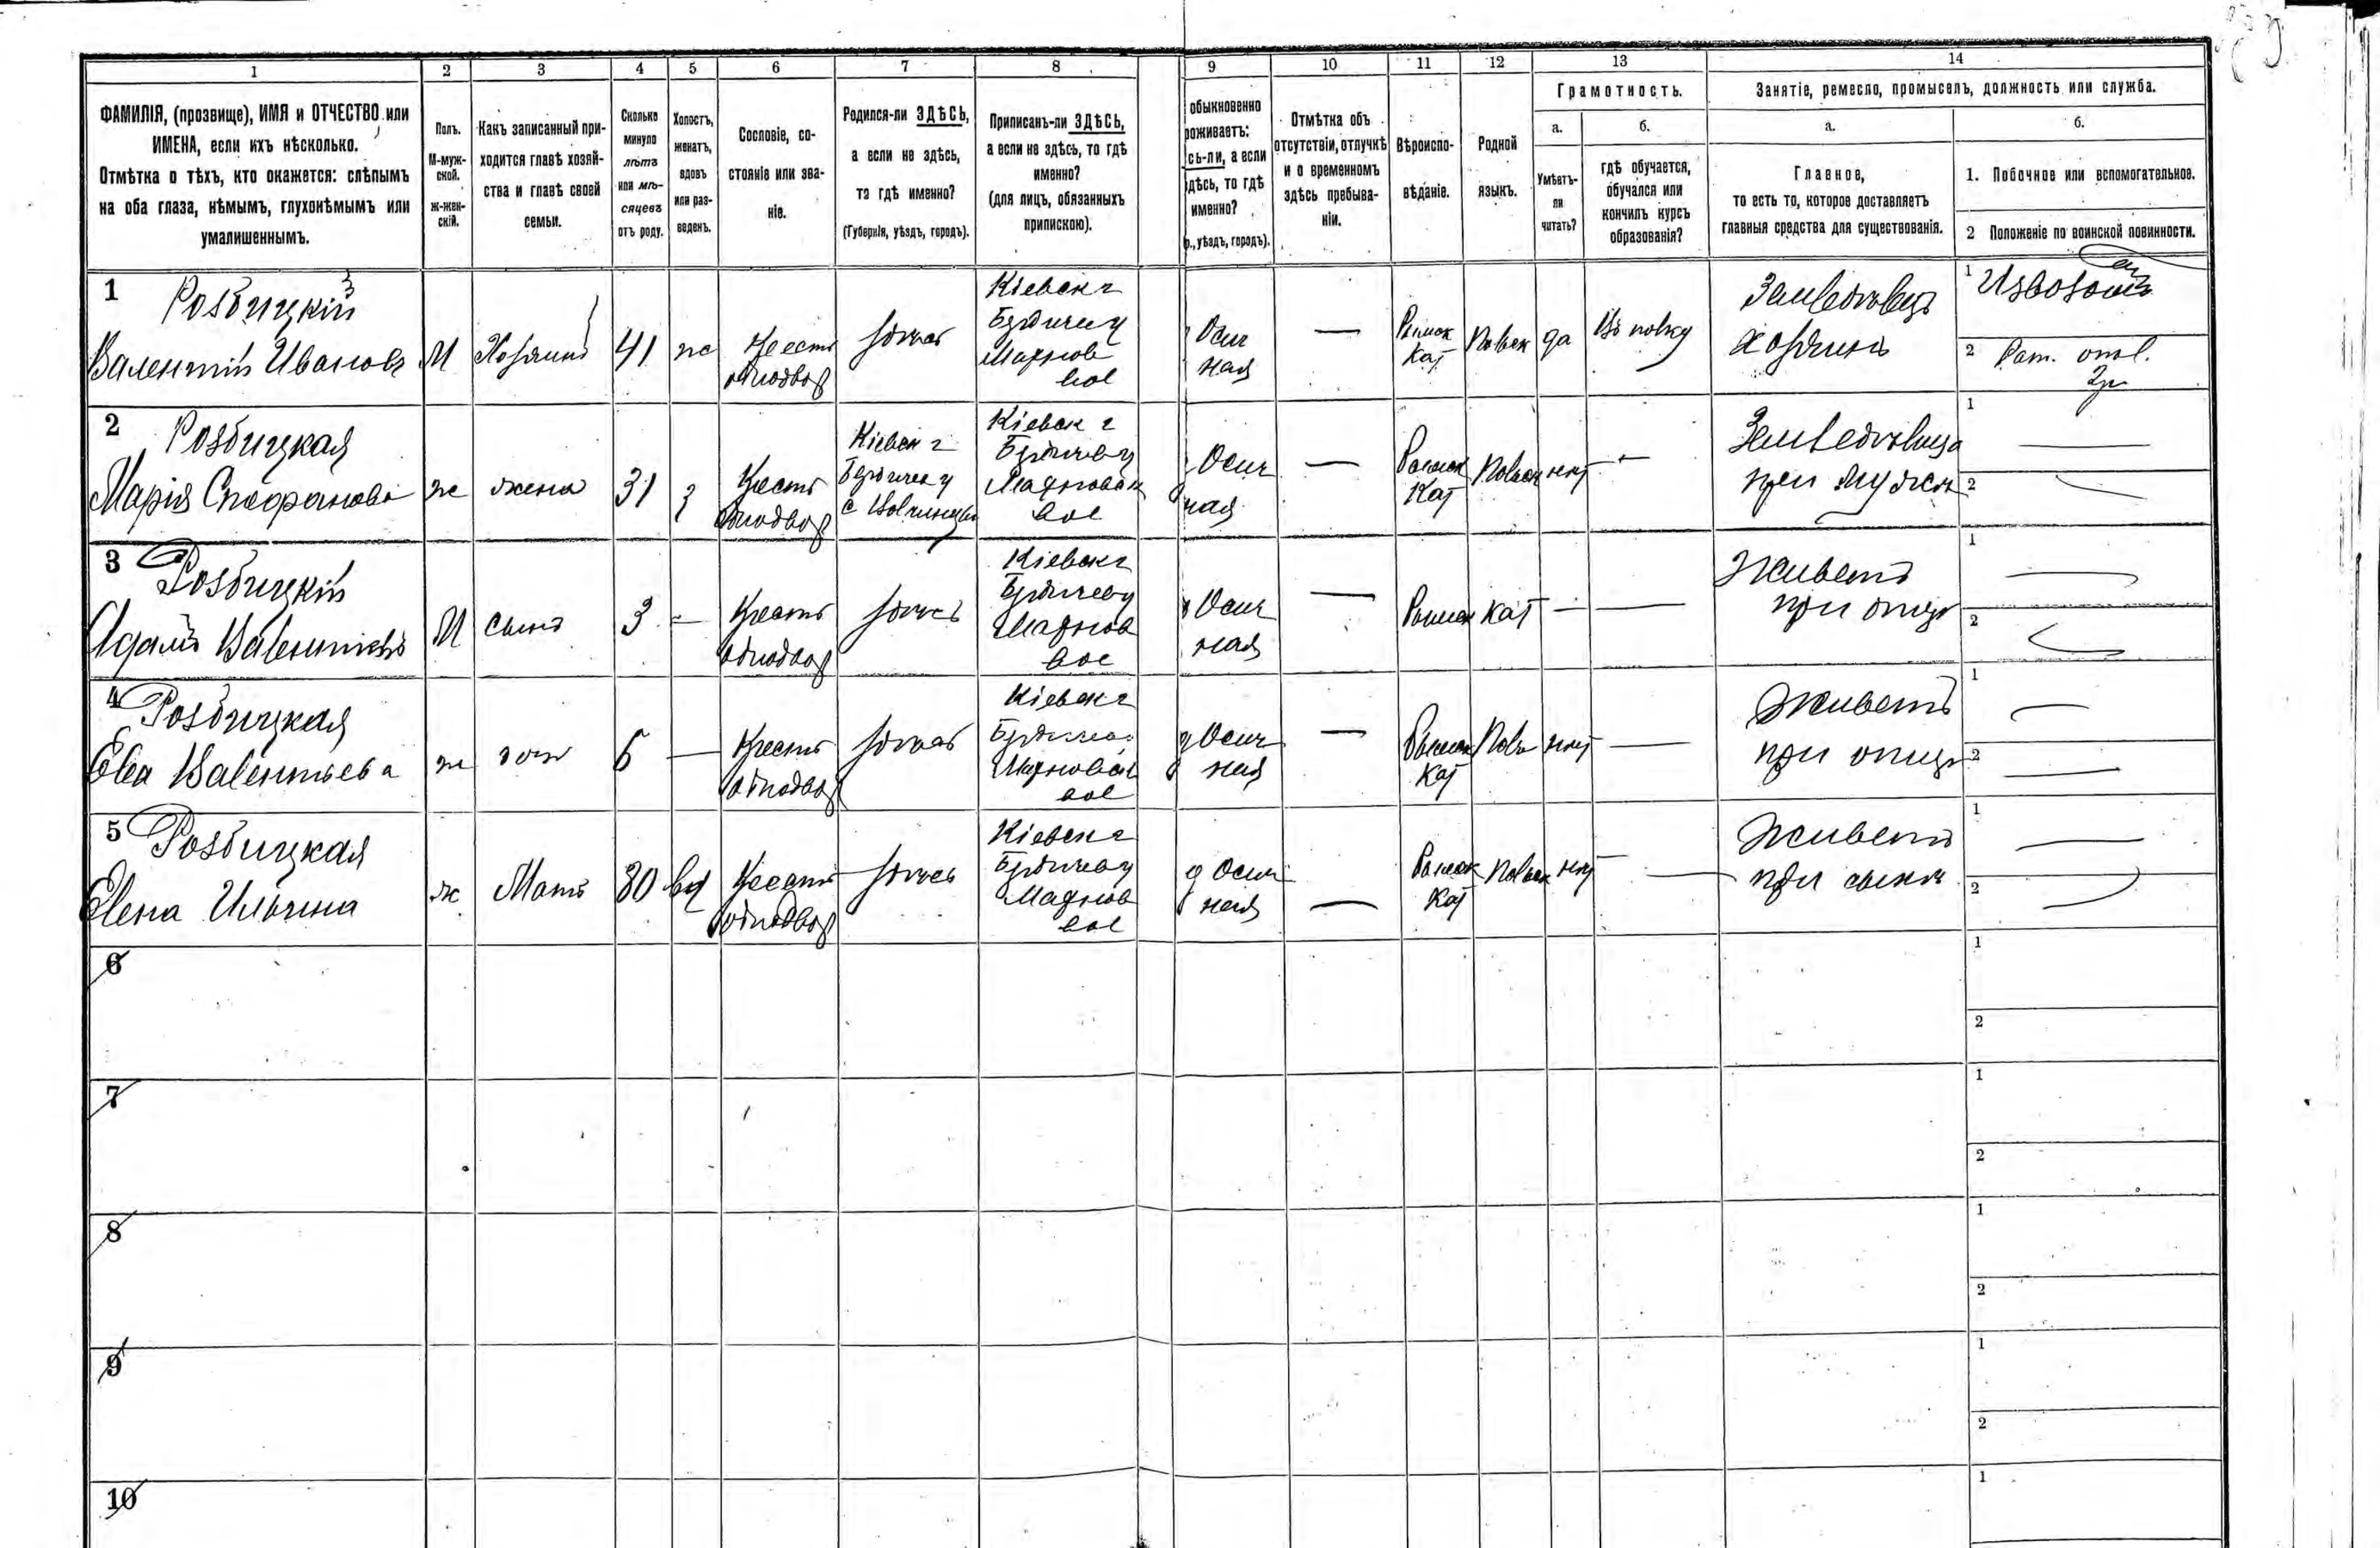 1 2 3 4 5 6 7 8 9 10 11 12 13 14
ФАМИЛІЯ, (прозвище), ИМЯ и ОТЧЕСТВО или
ИМЕНА, если ихъ нѣсколько.
Отмѣтка о тѣхъ, кто окажется: слѣпымъ
на оба глаза, нѣмымъ, глухонѣмымъ или
умалишеннымъ.
Полъ.
М-муж-
ской.
Ж-жен-
скій.
Какъ записанный при-
ходится главѣ хозяй-
ства и главѣ своей
семьи.
Сколько
минуло
лѣтъ
или мѣ-
сяцевъ
отъ роду.
Холостъ,
женатъ,
вдовъ
или раз-
веденъ.
Сословіе, со-
стояніе или зва-
ніе.
Родился-ли ЗДѢСЬ,
а если не здѣсь,
то гдѣ именно?
(Губернія, уѣздъ, городъ).
Приписанъ-ли ЗДѢСЬ,
а если не здѣсь, то гдѣ
именно?
(для лицъ, обязанныхъ
припискою).
обыкновенно
роживаетъ:
сь-ли, а если
дѣсь, то гдѣ
именно?
р., уѣздъ, городъ).
Отмѣтка объ
отсутствіи, отлучкѣ
и о временномъ
здѣсь пребыва-
ніи.
Вѣроиспо-
вѣданіе.
Родной
языкъ.
Грамотность.
а.
Умѣетъ-
ли
читать?
б.
гдѣ обучается,
обучался или
кончилъ курсъ
образованія?
Занятіе, ремесло, промыселъ, должность или служба.
а.
Главное,
то есть то, которое доставляетъ
главныя средства для существованія.
б.
1. Побочное или вспомогательное.
2 Положеніе по воинской повинности.
1
Розбицкій
Валентій Ивановъ
М
Хозяинъ
41
же
Крестъ
однодвор
здѣсь
Кіевск г
Бердичев у
Махнов
вол
д Осич
ная
—
Римск
Кат
Польск
да
Въ полку
Земледѣлецъ
хозяинъ
1 Извозомъ
2 Рат. опол.
2 р
2
Розбицкая
Марія Стефанова
же
жена
31
з
Крестъ
однодвор
Кіевск г
Бердичев у
Кіевск г
Бердичев у
Махновск
вол
д Осич
ная
—
Римск
Кат
Польск
нѣт
—
Земледѣлица
при мужѣ
1
2
3
Розбицкій
Адамъ Валентіевъ
М
сынъ
3
—
Крестъ
однодвор
здѣсь
Кіевск г
Бердичев у
Махнов
вол
д Осич
ная
—
Римск Кат
—
—
Живетъ
при отцѣ
1
2
4
Розбицкая
Ева Валентьева
же
дочь
—
Крестъ
однодвор
здѣсь
Кіевск г
Бердичев
Махновск
вол
д Осич
ная
—
Римск
Кат
Поль
нѣт
—
Живетъ
при отцѣ
1
2
5
Розбицкая
Елена Ильина
ж
Мать
80
вд
Крестъ
однодвор
здѣсь
Кіевск г
Бердичев у
Махнов
вол
д Осич
ная
—
Римск
Кат
Польск
нѣт
—
Живетъ
при сынѣ
1
2
6
1
2
7
1
2
8
1
2
9
1
2
10
1